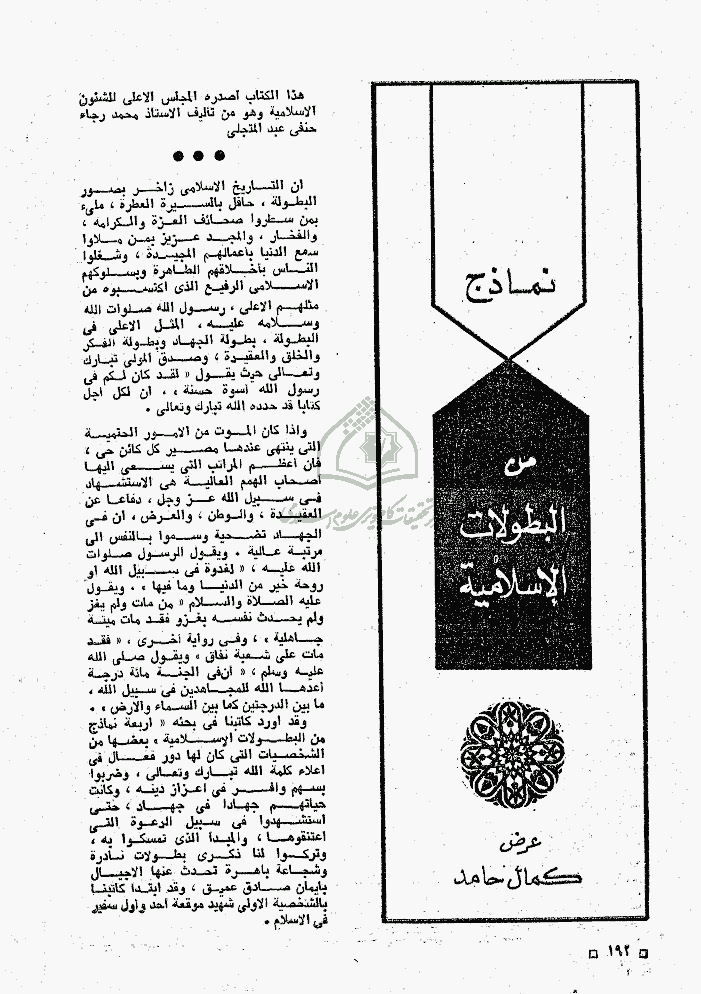 نماذج
من
البطولات
الإسلامية
عرض
كمال حامد
هذا الكتاب أصدره المجلس الاعلى للشئون
الاسلامية وهو من تأليف الاستاذ محمد رجاء
حنفى عبد المتجلى
● ● ●
ان التاريخ الاسلامى زاخر بصور
البطولة ، حافل بالسيرة العطرة ، ملىء
بمن سطروا صحائف العزة والكرامه ،
والفخار ، والمجد عزيز بمن ملاوا
سمع الدنيا بأعمالهم المجيدة ، وشغلوا
الناس بأخلاقهم الطاهرة وبسلوكهم
الاسلامى الرفيع الذى اكتسبوه من
مثلهم الاعلى ، رسول الله صلوات الله
وسلامه عليه ، المثل الاعلى فى
البطولة ، بطولة الجهاد وبطولة الفكر
والخلق والعقيدة ، وصدق المولى تبارك
وتعالى حيث يقول « لقد كان لكم فى
رسول الله أسوة حسنة » ، ان لكل اجل
كتابا قد حدده الله تبارك وتعالى .
واذا كان الموت من الامور الحتمية
التى ينتهى عندها مصير كل كائن حى ،
فان أعظم المراتب التى يسعى اليها
أصحاب الهمم العالية هى الاستشهاد
فى سبيل الله عز وجل ، دفاعا عن
العقيدة ، والوطن ، والعرض ، ان فى
الجهاد تضحية وسموا بالنفس الى
مرتبة عالية . ويقول الرسول صلوات
الله عليه ، « لغدوة فى سبيل الله او
روحة خير من الدنيا وما فيها » . ويقول
عليه الصلاة والسلام « من مات ولم يغز
ولم يحدث نفسه بغزو فقد مات ميتة
جاهلية » ، وفى رواية أخرى ، « فقد
مات على شعبة نفاق » ويقول صلى الله
عليه وسلم ، « ان فى الجنة مائة درجة
أعدها الله للمجاهدين فى سبيل الله ،
ما بين الدرجتين كما بين السماء والارض » .
وقد اورد كاتبنا فى بحثه « اربعة نماذج
من البطولات الاسلامية » بعضها من
الشخصيات التى كان لها دور فعال فى
اعلاء كلمة الله تبارك وتعالى ، وضربوا
بسهم وافر فى اعزاز دينه ، وكانت
حياتهم جهادا فى جهاد ، حتى
استشهدوا فى سبيل الدعوة التى
اعتنقوها ، والمبدأ الذى تمسكوا به ،
وتركوا لنا ذكرى بطولات نادرة
وشجاعة باهرة تحدث عنها الاجيال
بايمان صادق عميق ، وقد ابتدا كاتبنا
بالشخصية الاولى شهيد موقعة أحد وأول سفير
فى الاسلام .
١٩٢